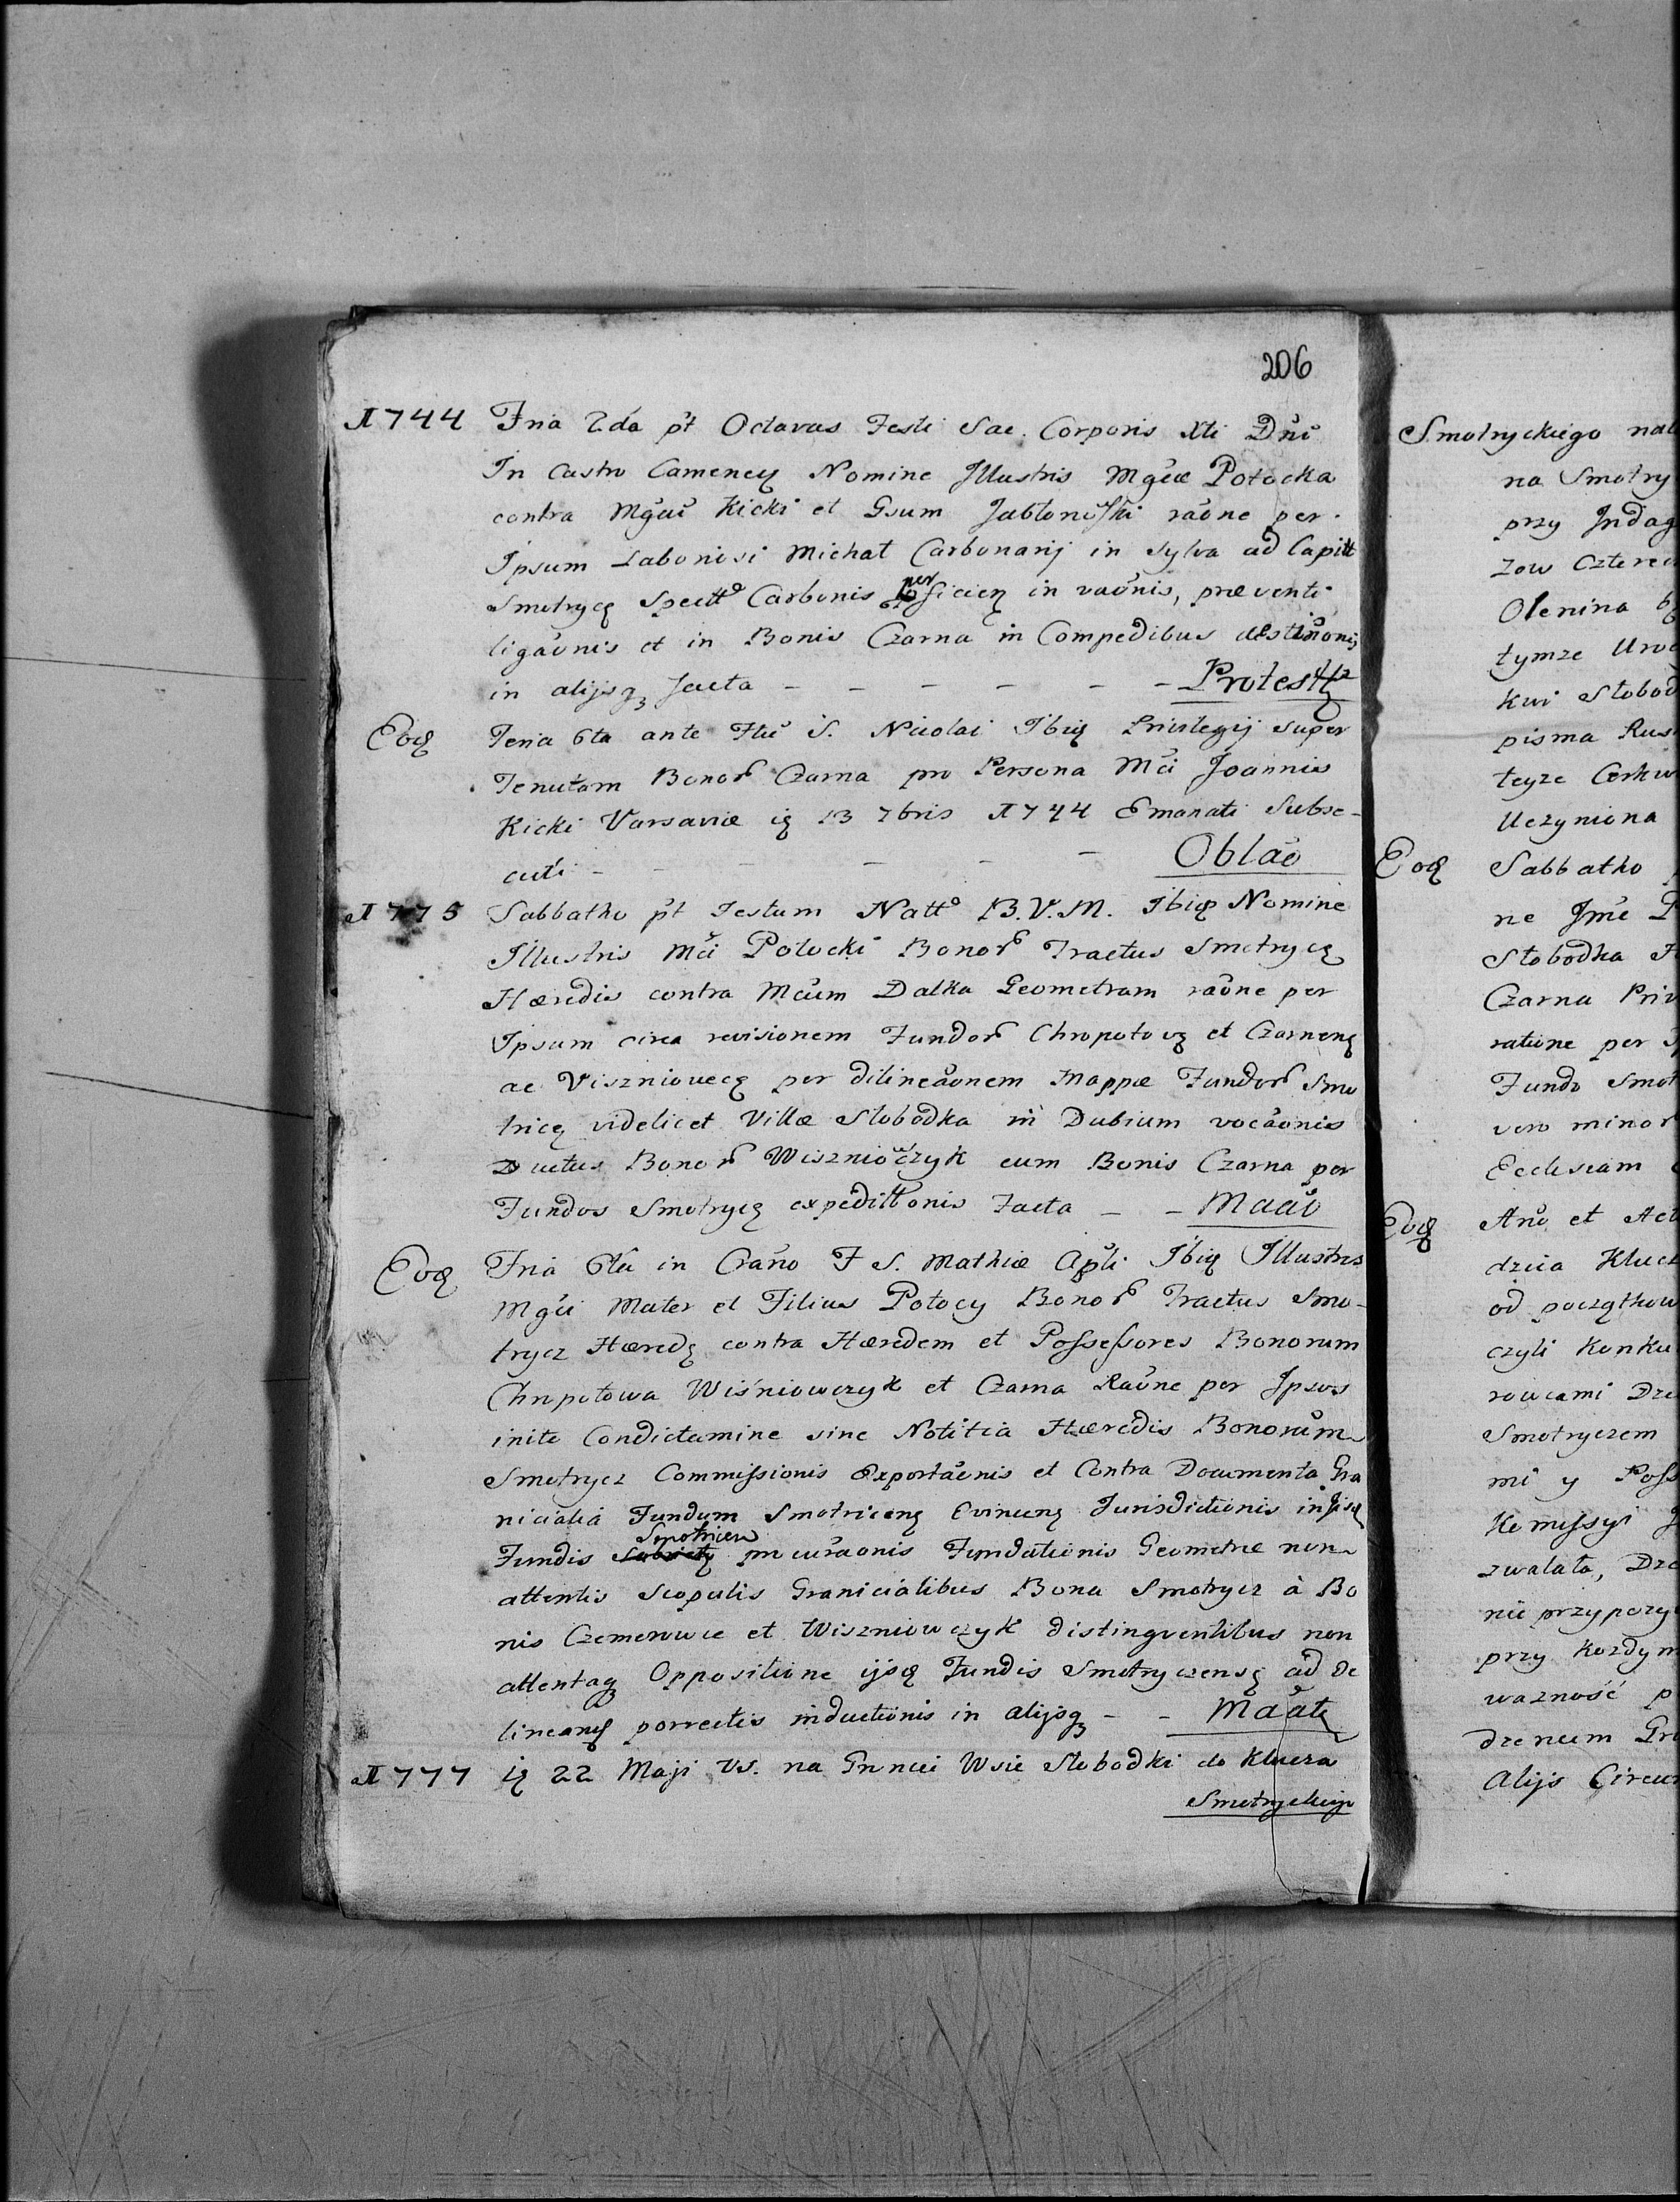 206
1744 Fria 2da pt Octavas Festi Sac. Corporis Xti Dni
In Castro Camenecq Nomine Illustris Mgcæ Potocka
contra Mgcu Kicki et Gsum Jabłonoſki raone per
Ipsum Laboriosi Michał Carbonarij in sylva ad Capitt
Smotrycq Spectto Carbonis in vaonis, præventi
ligaonis et in Bonis Czarna in Compedibus
in alijsq Facta - - - - - - Protestt
Eoq Feria 6ta ante Ftu S. Nicolai Ibiq Privilegij super
Tenutam Bonor Czarna pro Persona Mci Joannis
Kicki Varsaviæ iq 13 7bris 1744 Emanati Subse-
cuti - - - - - Oblao
1775 Sabbatho pt Festum Natto B.V.M. Ibiq Nomine
Illustris Mci Potocki Bonor Tractus Smotrycq
Hæredis contra Mcum Dalka Geometram raone per
Ipsum circa revisionem Fundor Chropotovq et Czarnenq
ac Viszniovecq per dilineaonem Mappæ Fundor Smo
tricq videlicet Villæ Słobodka in Dubium vocaonis
Ductus Bonor Wiszniowczyk cum Bonis Czarna per
Fundos Smotrycq expedittonis Facta - - Maao
Eoq Fria 6ta in Crano F S. Mathiæ Apli Ibiq Illustris
Mgci Mater et Filius Potocy Bonor Tractus Smo-
trycz Hæredq contra Hæredem et Poſseſsores Bonorum
Chropotowa Wiśniowczyk et Czarna Raone per Ipsos
initi Condictamine sine Notitia Hæredis Bonorum
Smotrycz Commiſsionis Exportaonis et Contra Documenta Gra
nicialia Fundum Smotricenq Evincenq Jurisdictionis in
Smotricen
Fundis procuraonis Fundationis Geometræ non
attentis Scopulis Granicialibus Bona Smotrycz à Bo
nis Czemerowce et Wiszniowczyk distingventibus non
attentaq Oppositione ijsq Fundis Smotryczensq ad de
lineanq porrectis inductionis in alijsq - - Maatq
1777 iq 22 Maji VS. na Gruncie Wsie Słobodki do Klucza
Smotryckiego
Smotryckiego
na Smotry
przy Indag
zow Czterec
Olenina
tymze Uro
kwi Słobod
pisma Rus
teyze Cerkw
Uczyniona
Eoq Sabbatho
ne Jmc P
Słobodka
Czarna Priv
ratione per
Fundo Smot
vero minor
Ecclesiam
Eoq Ano et Act
dzica Klucz
od początkow
czyli Konku
rowcami Dzie
Smotryczem
mi y Poſs
Komiſsyi
zwalała, Dzie
nie przypozy
przy Kozdym
wazność p
dzeneum Gr
Alijs Circum